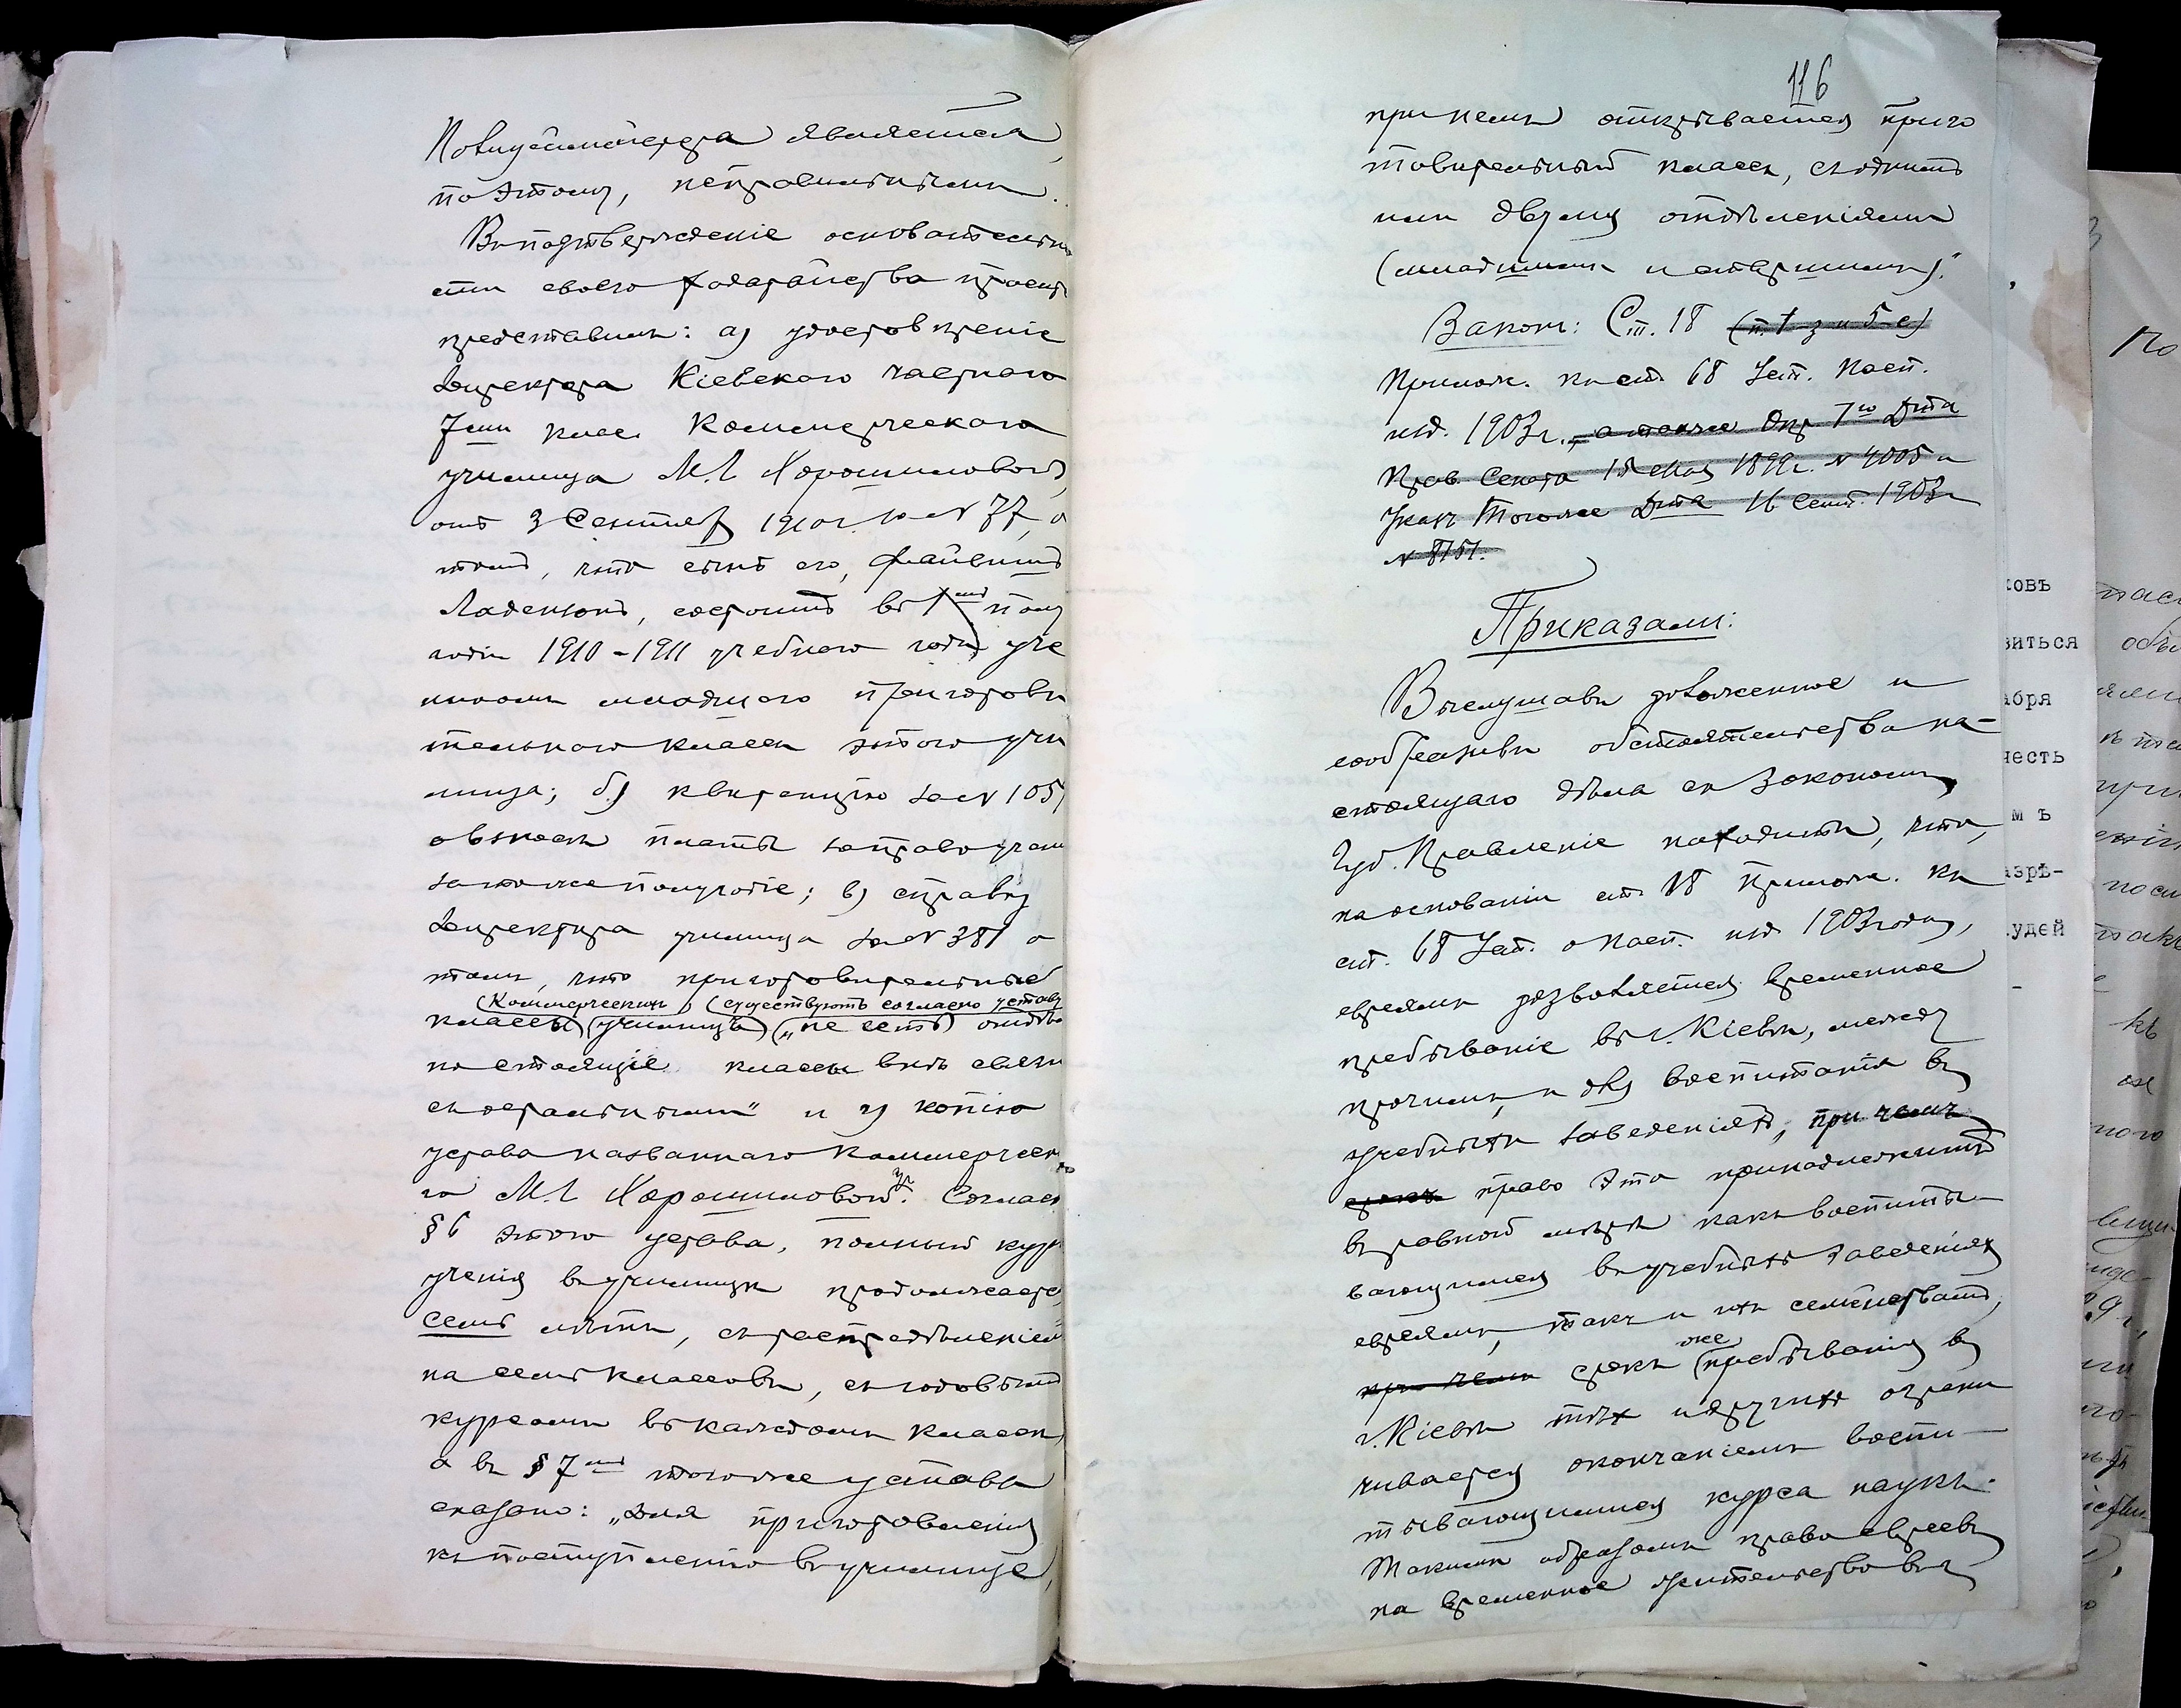 Полицiймейстера является,
поэтому, неправильнымъ.
Въ подтвержденiе основательно
сти своего ходатайства проситель
представилъ: а) удостовѣренiе
Директора Кiевскаго частнаго
7ми класс. Коммерческаго
училища М.Л. Хорошиловой,
отъ 3 Сентября 1910 г. за № 77, о
томъ, что сынъ его, Файвишъ
Ладензонъ, состоитъ въ 1мъ полу
годiи 1910-1911 учебнаго года уче
никомъ младшаго приготови
тельнаго класса этого учи
лища; б) квитанцiю за № 105
о взносѣ платы за право учен
за тоже полугодiе; в) справку
Директора училища за № 381 о
томъ, что приготовительные
(Коммерческихъ) (существуютъ согласно уставу
классы (училища) („не есть) отдѣль
но стоящiе классы внѣ связи
съ остальными" и г) копiю
устава названнаго Коммерческа
го М.Л. Хорошиловой уч. Согласно
§ 6 этого устава, полный курсъ
ученiя въ училищѣ продолжается
семь лѣтъ, съ распредѣленiемъ
на семь классовъ, съ годовымъ
курсомъ въ каждомъ классѣ,
а въ § 7мъ того же устава
сказано: „Для приготовленiя
къ поступленiю въ училище,
116
при немъ открывается приго
товительный классъ, съ однимъ
или двумя отдѣленiями
(младшимъ и старшимъ)."
Законъ: Ст. 18 (п. 1 з и 5 е)
Прилож. къ ст. 68 Уст. Пасп.
изд. 1903 г., а также Опр 1го Дта
Прав. Сената 18 мая 1899 г. № 4005 и
Указъ Того же Дта 16 Сент. 1903 г.
№ 8751.
Приказали:
Выслушавъ доложенное и
сообразивъ обстоятельства на-
стоящаго дѣла съ Закономъ,
Губ. Правленiе находитъ, что,
на основанiи ст. 18 Прилож. къ
ст. 68 Уст. о Пасп. изд. 1903 года,
евреямъ дозволяется временное
пребыванiе въ г. Кiевѣ, между
прочимъ, и для воспитанiя въ
учебныхъ заведенiяхъ, при чемъ
срокъ право это принадлежитъ
въ равной мѣрѣ какъ воспиты-
вающимся въ учебныхъ заведенiяхъ
евреямъ, такъ и ихъ семействамъ,
при чемъ срокъ же (пребыванiя въ
г. Кiевѣ тѣхъ и другихъ ограни
чивается окончанiемъ воспи-
тывающимися курса наукъ.
Такимъ образомъ право евреевъ
на временное жительство въ г.
ковъ
виться
абря
честь
мъ
азрѣ-
удей
По